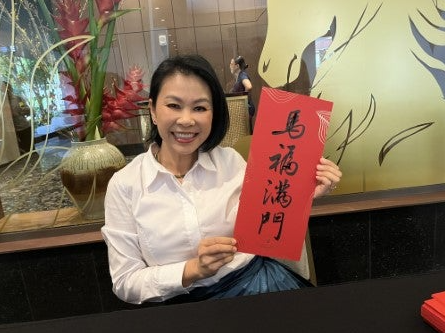 馬福滿門